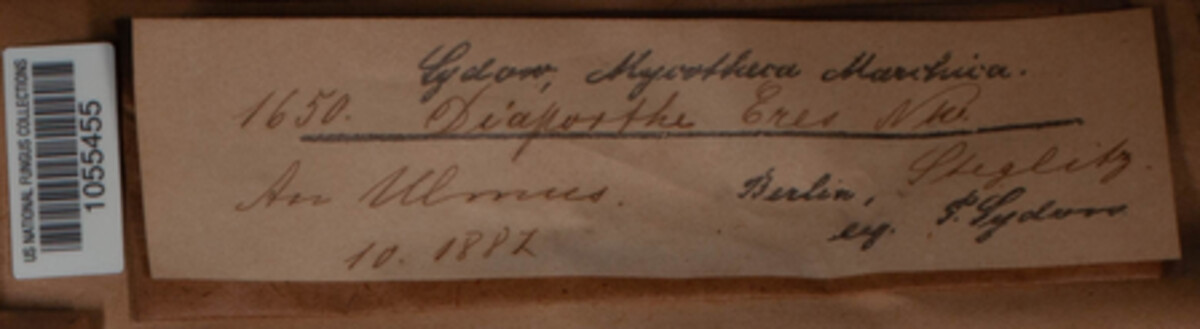 US NATIONAL FUNGUS COLLECTIONS
1055455
Sydow, Mycotheca Marchica.
1650. Diaporthe Eres Nke.
An Ulmus. Berlin, Steglitz.
10. 1887 leg. P. Sydow